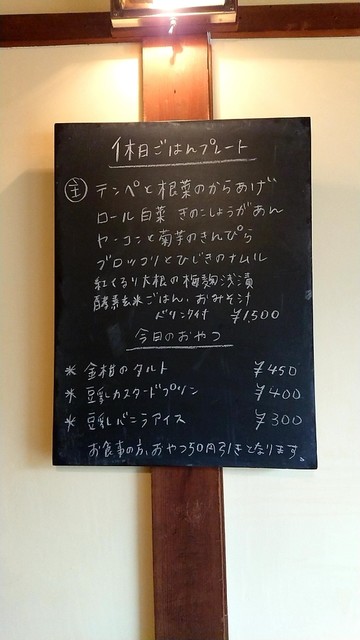 休日ごはんプレート
主 テンペと根菜のからあげ
ロール白菜 きのこしょうがあん
ヤーコンと菊芋のきんぴら
ブロッコリとひじきのナムル
紅くるり大根の梅麹浅漬
酵素玄米ごはん、おみそ汁
ドリンク付 ¥1,500
今日のおやつ
* 金柑のタルト ¥450
* 豆乳カスタードプリン ¥400
* 豆乳バニラアイス ¥300
お食事の方、おやつ50円引きとなります。